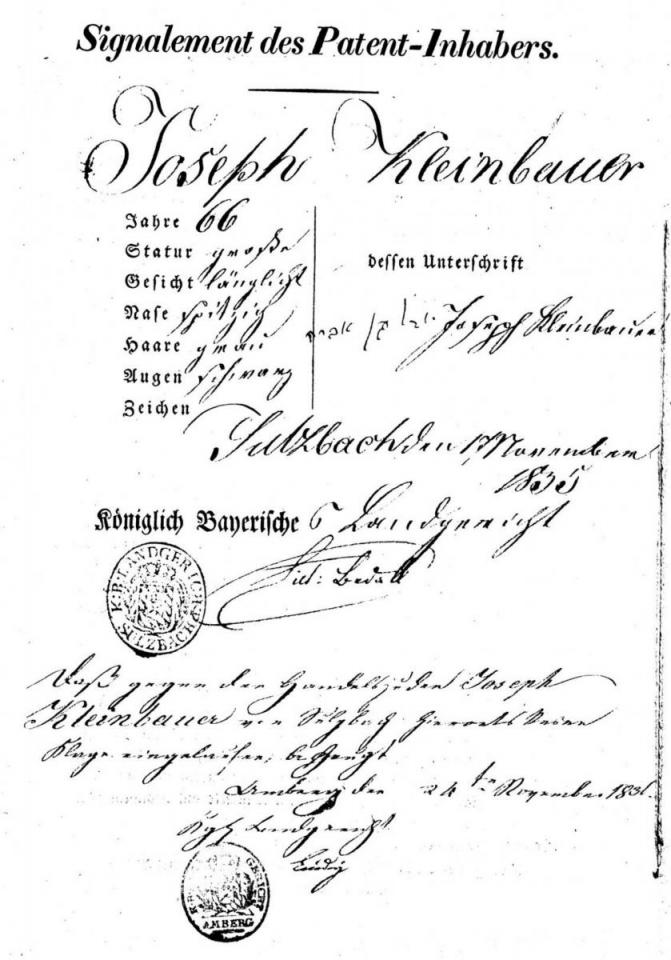 Signalement des Patent-Inhabers.
Joseph Kleinbauer
Jahre 66
Statur große
Gesicht länglicht
Nase spitzig
Haare grau
Augen schwarz
Zeichen
dessen Unterschrift
Joseph Kleinbauer
Sulzbach den 17 November
1835
Königlich Bayerische Landgericht
K. B. LANDGERICHT SULZBACH
Daß gegen den Handelsjuden Joseph
Kleinbauer von Sulzbach hierorts keine
Klage eingelaufen, bezeugt
Amberg den 24ten November
Kgl. Landgericht
AMBERG